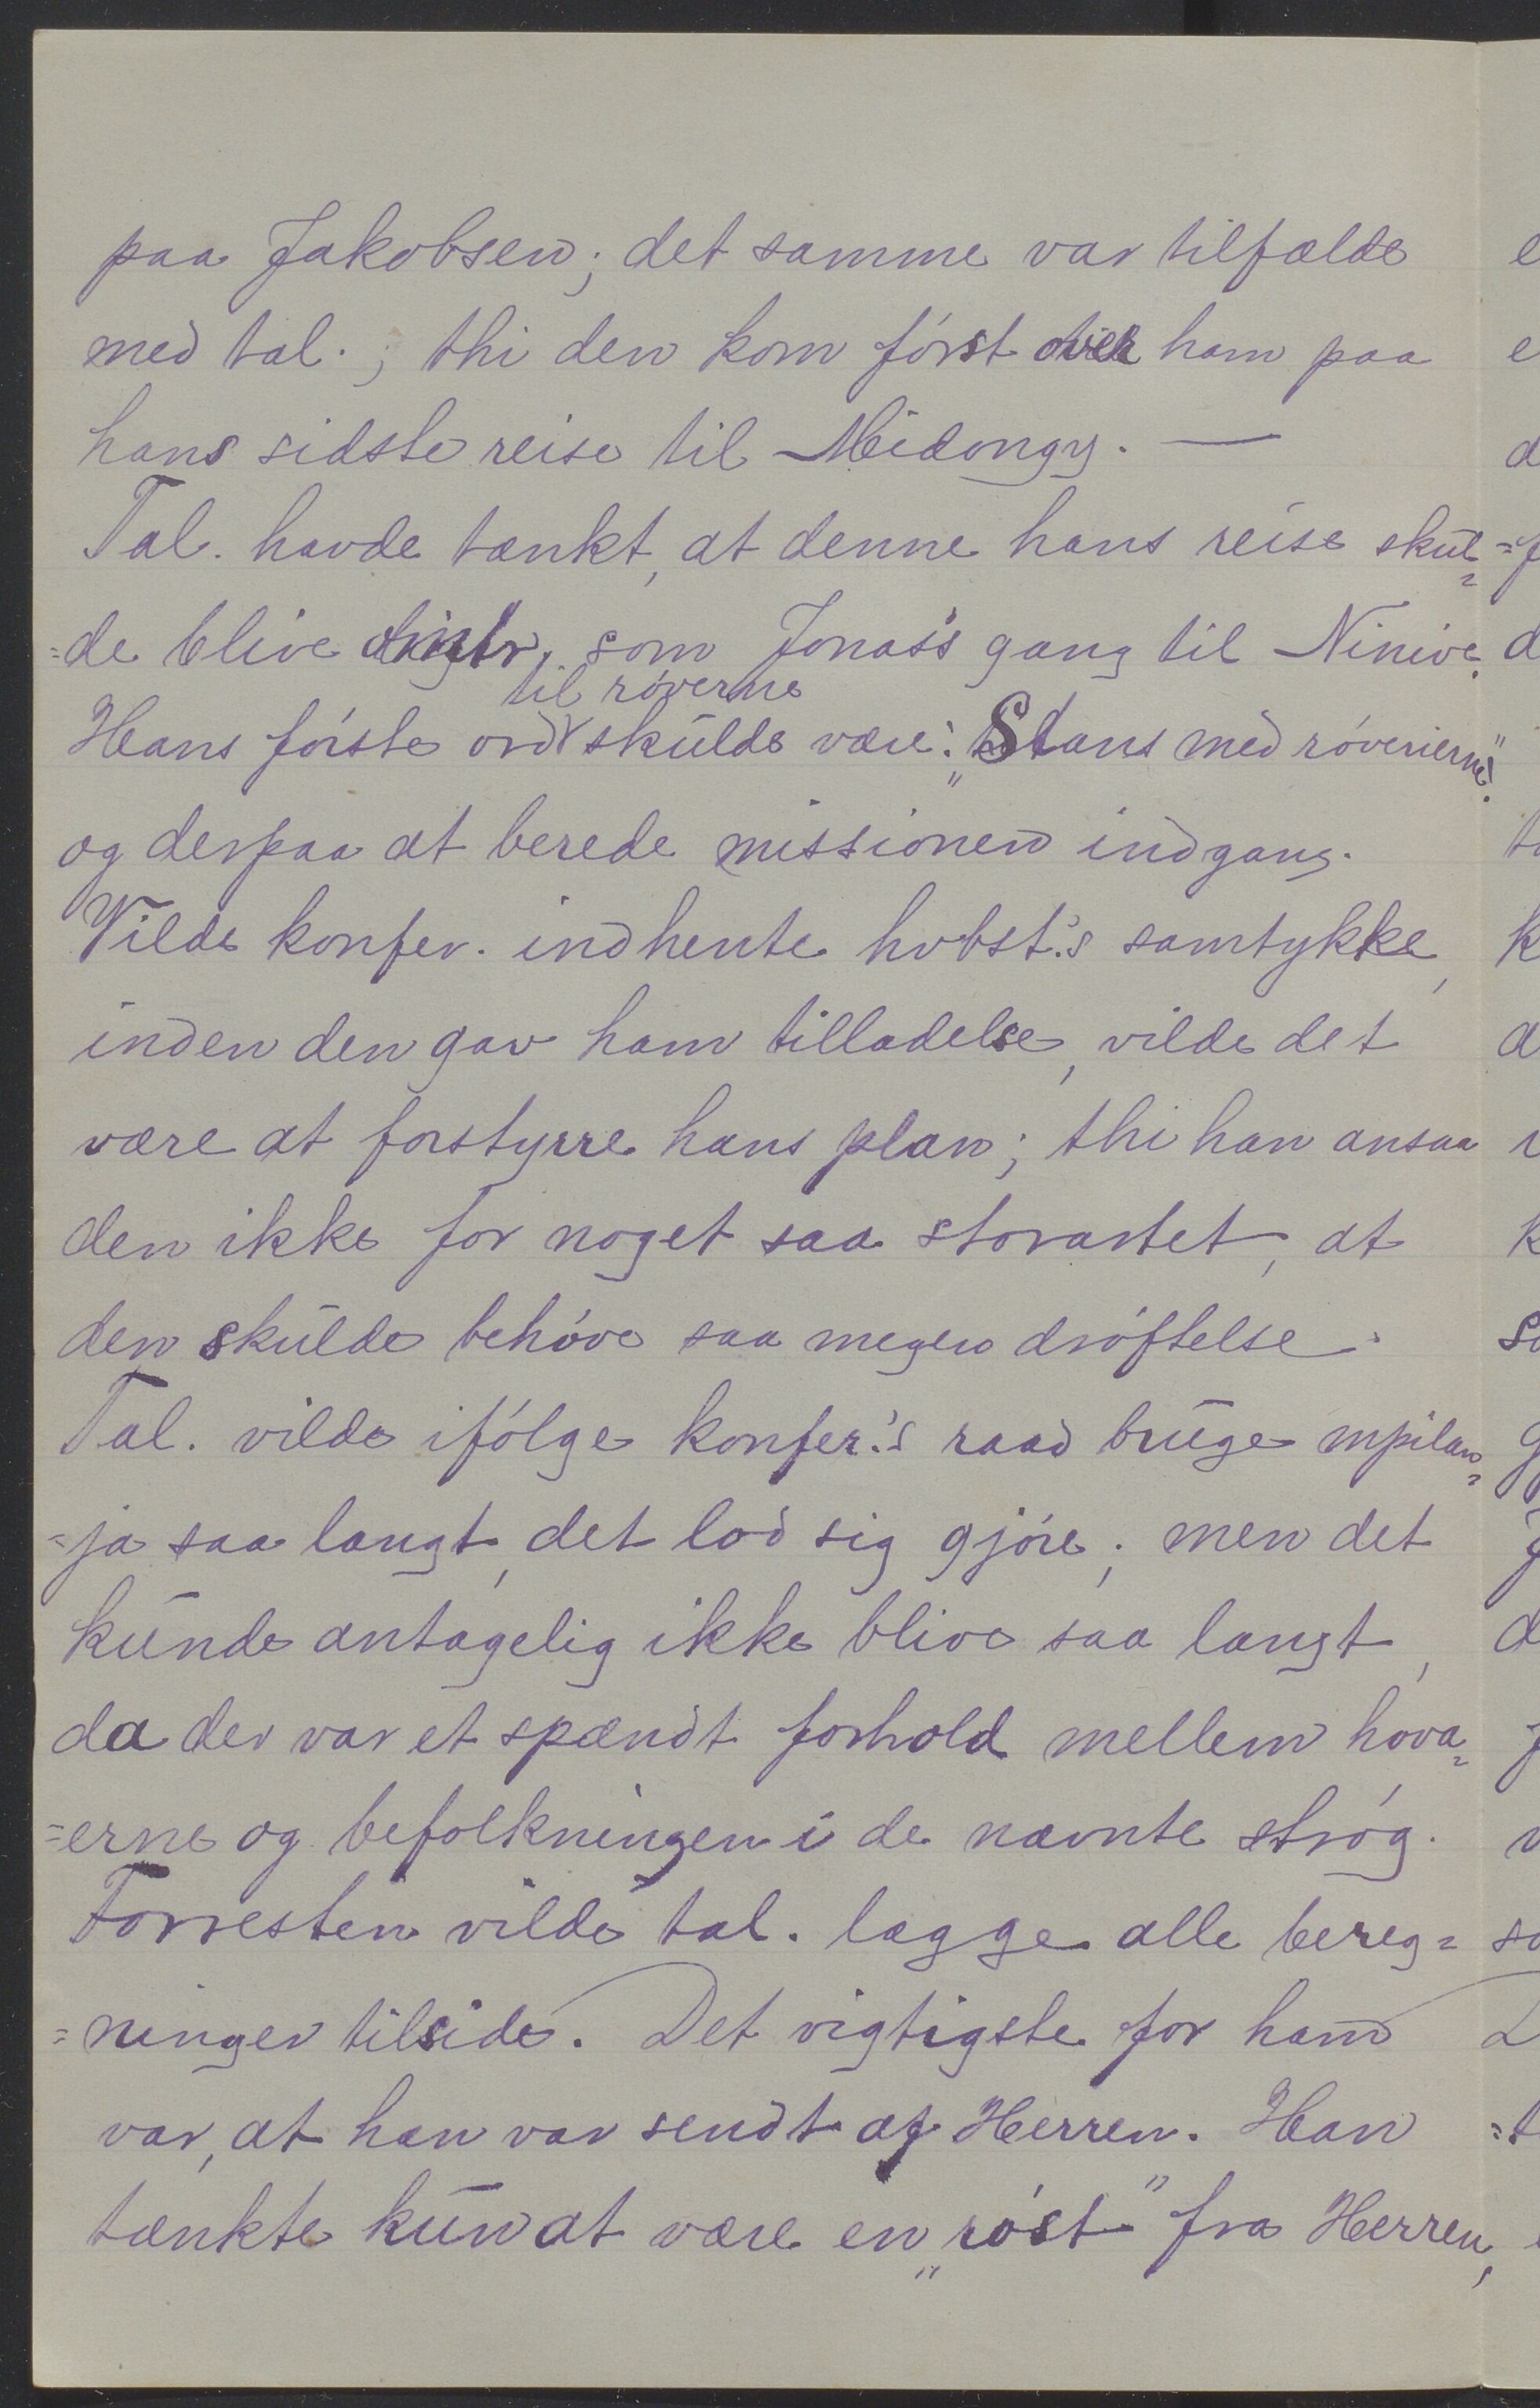 paa Jakobsen; det samme var tilfælde
med tal.; thi den kom först over ham paa
hans sidste reise til Midongy. —
Tal. havde tænkt, at denne hans reise skul=
=de blive som Jonas's gang til Ninive.
til röverne
Hans förste ord skulde være: „Stans med röverierne!"
og derpaa at berede missionen indgang.
Vilde konfer. indhente hvbst.'s samtykke,
inden den gav ham tilladelse, vilde det
være at forstyrre hans plan; thi han ansaa
den ikke for noget saa storartet, at
den skulde behöve saa megen dröftelse.
Tal. vilde ifölge konfer.'s raad bruge mpilan=
=ja saa langt, det lod sig gjöre; men det
kunde antagelig ikke blive saa langt,
da der var et spændt forhold mellem hova=
=erne og befolkningen i de nævnte strög.
Forresten vilde tal. lægge alle bereg=
=ninger tilside. Det vigtigste for ham
var, at han var sendt af Herren. Han
tænkte kun at være en „röst" fra Herren,